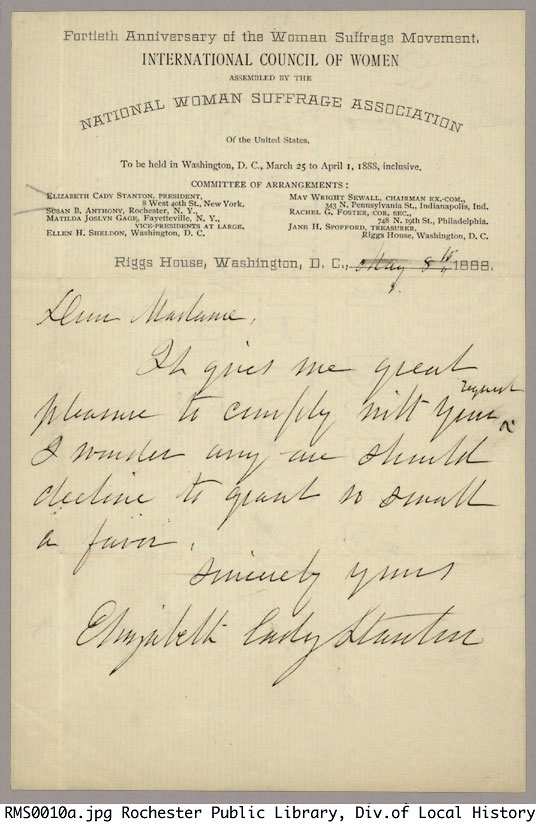 Fortieth Anniversary of the Woman Suffrage Movement,
INTERNATIONAL COUNCIL OF WOMEN
ASSEMBLED BY THE
NATIONAL WOMAN SUFFRAGE ASSOCIATION
Of the United States,
To be held in Washington, D. C., March 25 to April 1, 1888, inclusive.
COMMITTEE OF ARRANGEMENTS:
ELIZABETH CADY STANTON, PRESIDENT,
8 West 40th St., New York.
SUSAN B. ANTHONY, Rochester, N. Y.,
MATILDA JOSLYN GAGE, Fayetteville, N. Y.,
VICE-PRESIDENTS AT LARGE.
ELLEN H. SHELDON, Washington, D. C.
MAY WRIGHT SEWALL, CHAIRMAN EX.-COM.,
343 N. Pennsylvania St., Indianapolis, Ind.
RACHEL G. FOSTER, COR. SEC.,
748 N. 19th St., Philadelphia.
JANE H. SPOFFORD, TREASURER,
Riggs House, Washington, D. C.
Riggs House, Washington, D. C., May 8th 1888.
Dear Madame,
It gives me great
pleasure to comply with your request
I wonder any one should
decline to grant so small
a favor.
Sincerely yours
Elizabeth Cady Stanton
RMS0010a.jpg Rochester Public Library, Div.of Local History